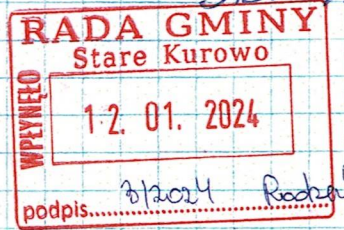 RADA GMINY
Stare Kurowo
WPŁYNĘŁO
12. 01. 2024
podpis.......... 3/2024